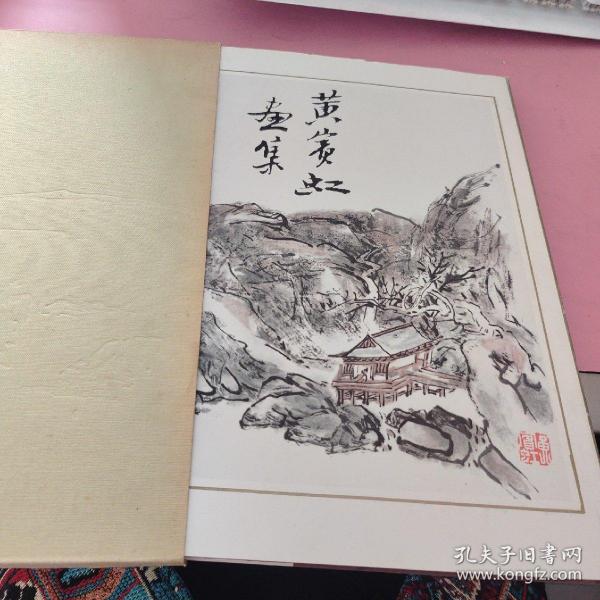 黄宾虹
画集
孔夫子旧书网
www.kongfz.com